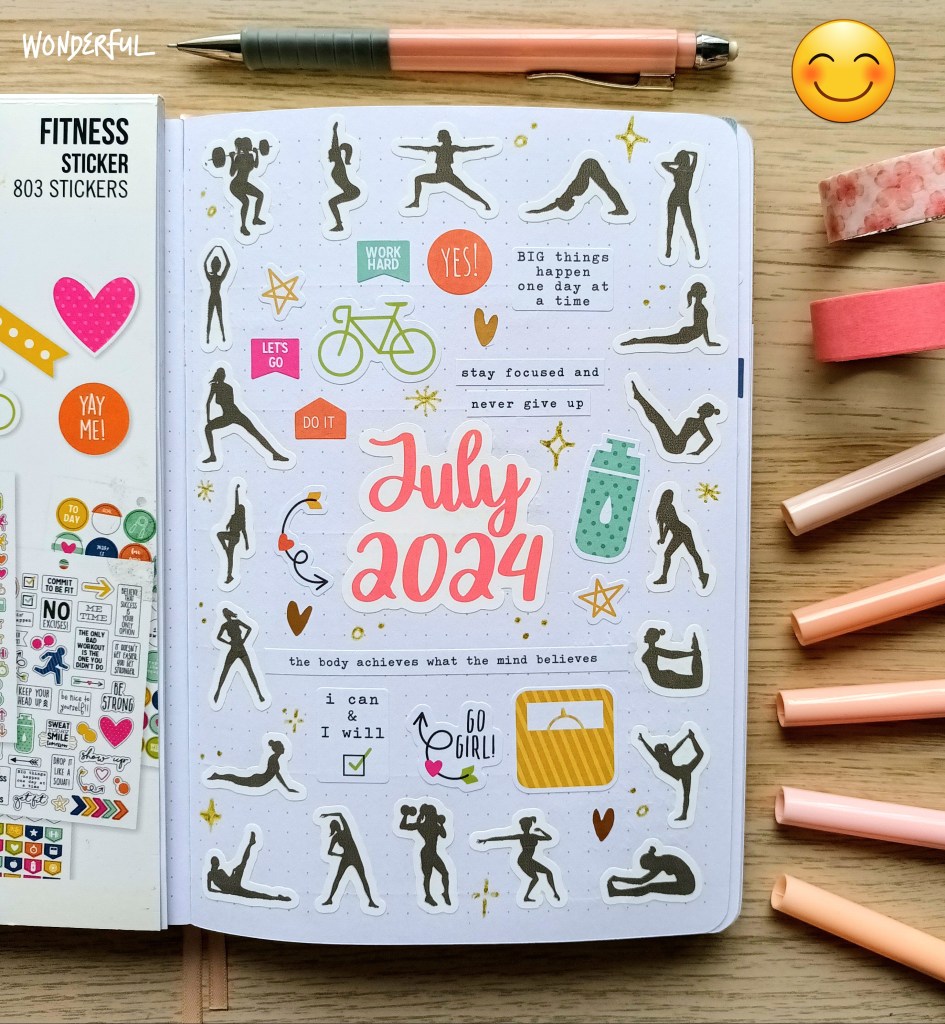 WONDERFUL
FITNESS
STICKER
803 STICKERS
YAY
ME!
TO
DAY
COMMIT
TO BE FIT
NO
EXCUSES!
ME
TIME
BELIEVE
THAT
SUCCESS IS
YOUR
ONLY
OPTION
THE ONLY
BAD
WORKOUT
IS THE
ONE YOU
DIDN'T DO
IT DOESN'T
GET EASIER,
YOU GET
STRONGER.
KEEP YOUR
HEAD UP
be nice to
yourself!
BE
STRONG
SWEAT
SMILE
show up
BIG things
happen
one day at
a time
DROP IT
LIKE A
SQUAT!
get fit
WORK
HARD
YES!
BIG things
happen
one day at
a time
LET'S
GO
stay focused and
never give up
DO IT
July
2024
the body achieves what the mind believes
i can
&
I will
GO
GIRL!